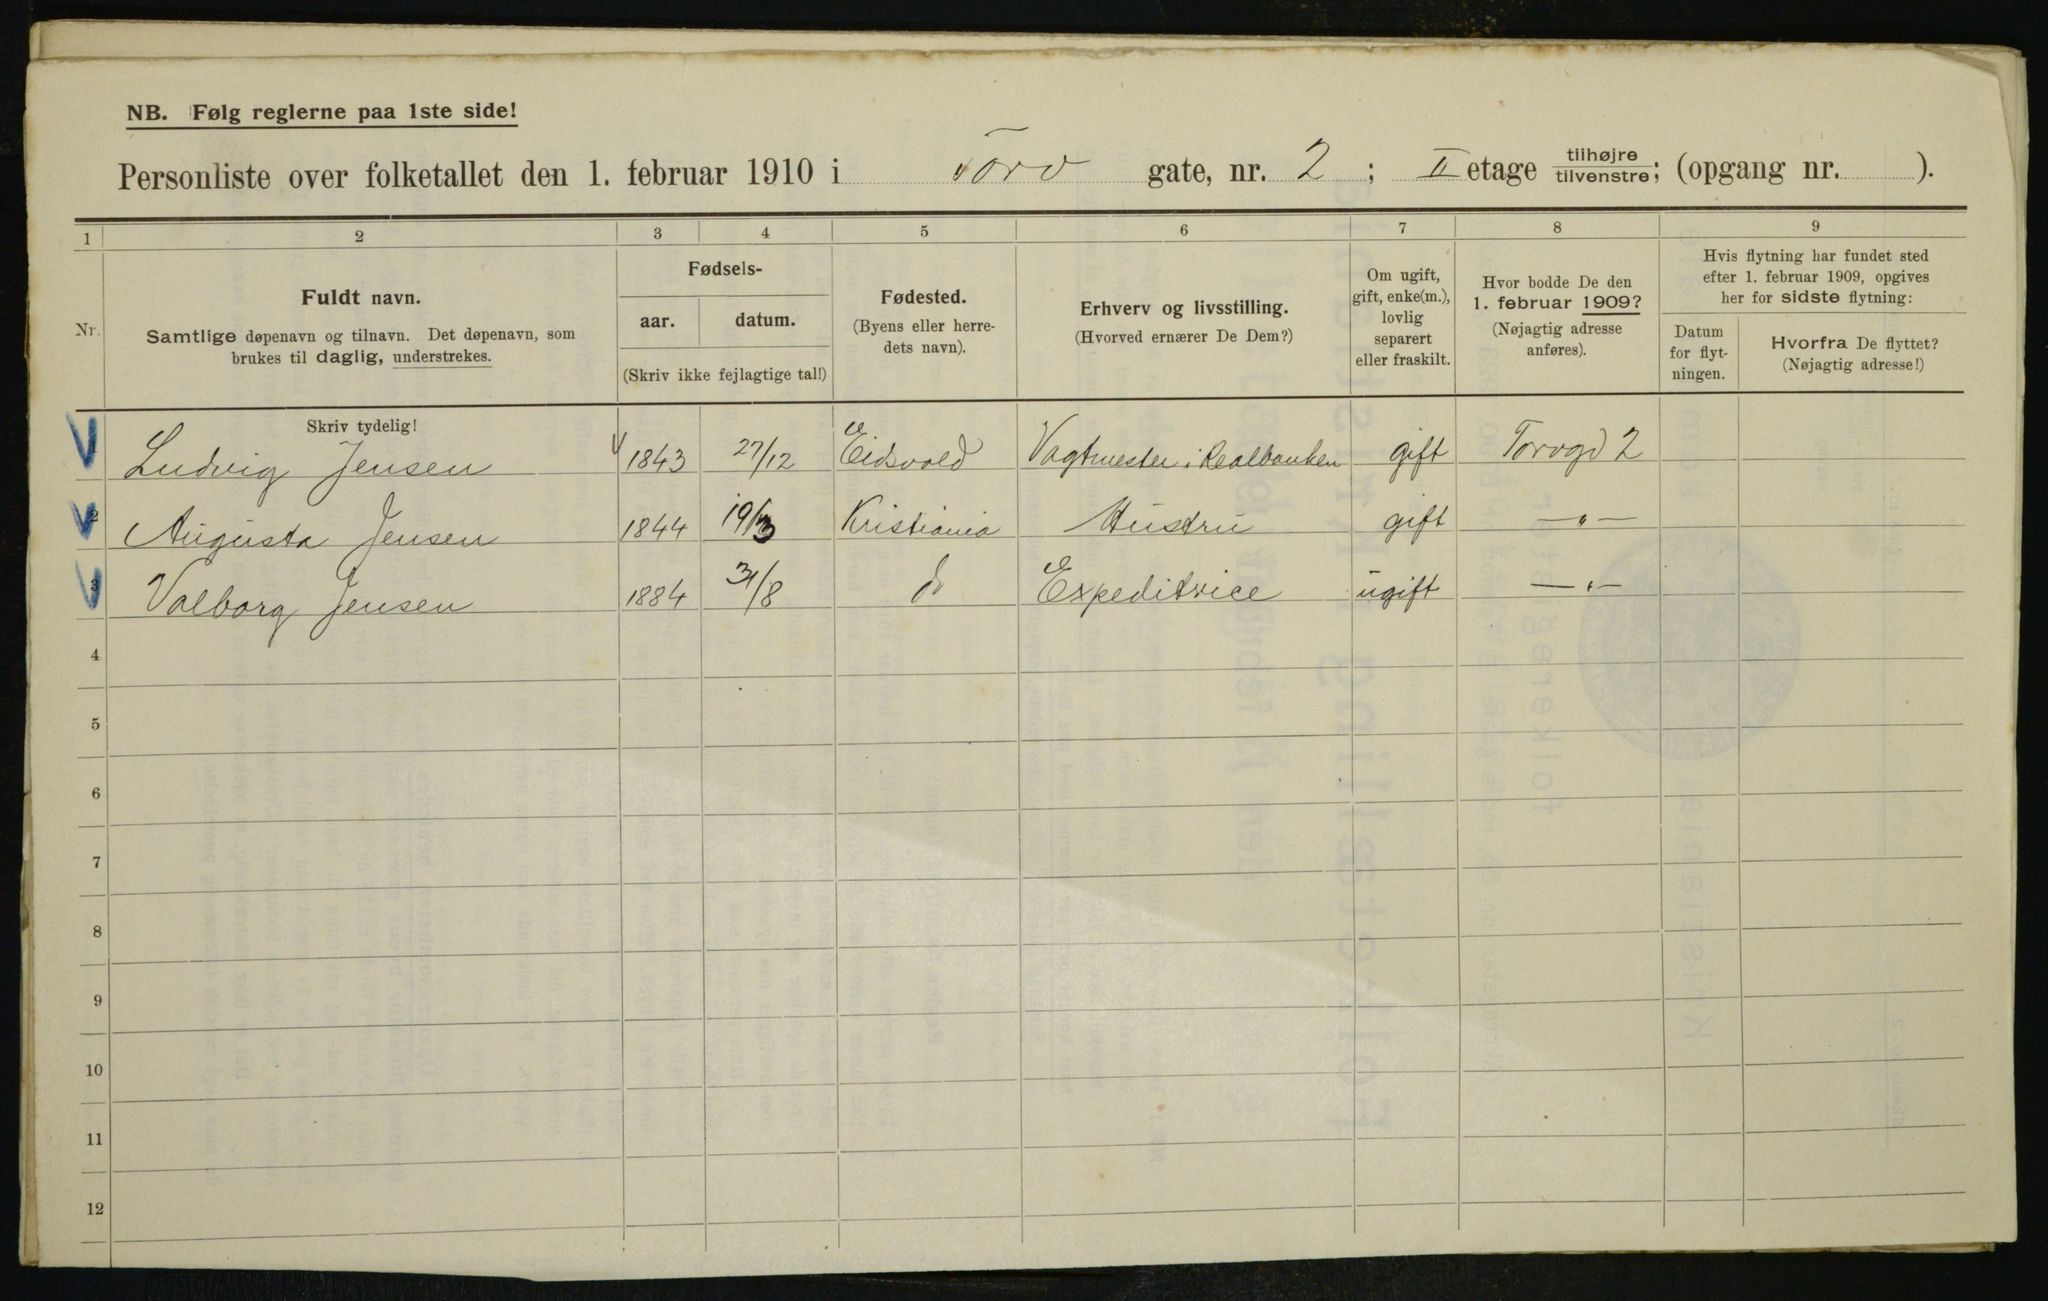 NB. Følg reglerne paa 1ste side!
Personliste over folketallet den 1. februar 1910 i Torv gate, nr. 2 ; II etage tilhøjre tilvenstre ; (opgang nr. ).
1 2 3 4 5 6 7 8 9
Nr.
Fuldt navn.
Samtlige døpenavn og tilnavn. Det døpenavn, som
brukes til daglig, understrekes.
Fødsels-
aar. datum.
(Skriv ikke fejlagtige tal!)
Fødested.
(Byens eller herre-
dets navn).
Erhverv og livsstilling.
(Hvorved ernærer De Dem?)
Om ugift,
gift, enke(m.),
lovlig
separert
eller fraskilt.
Hvor bodde De den
1. februar 1909?
(Nøjagtig adresse
anføres).
Hvis flytning har fundet sted
efter 1. februar 1909, opgives
her for sidste flytning:
Datum
for flyt-
ningen.
Hvorfra De flyttet?
(Nøjagtig adresse!)
Skriv tydelig!
Ludvig Jensen 1843 27/12 Eidsvold Vagtmester i Realbanken gift Torvgd 2
2 Augusta Jensen 1844 19/3 Kristiania Hustru gift —"—
3 Valborg Jensen 1884 31/8 do Expeditrice ugift —"—
4
5
6
7
8
9
10
11
12